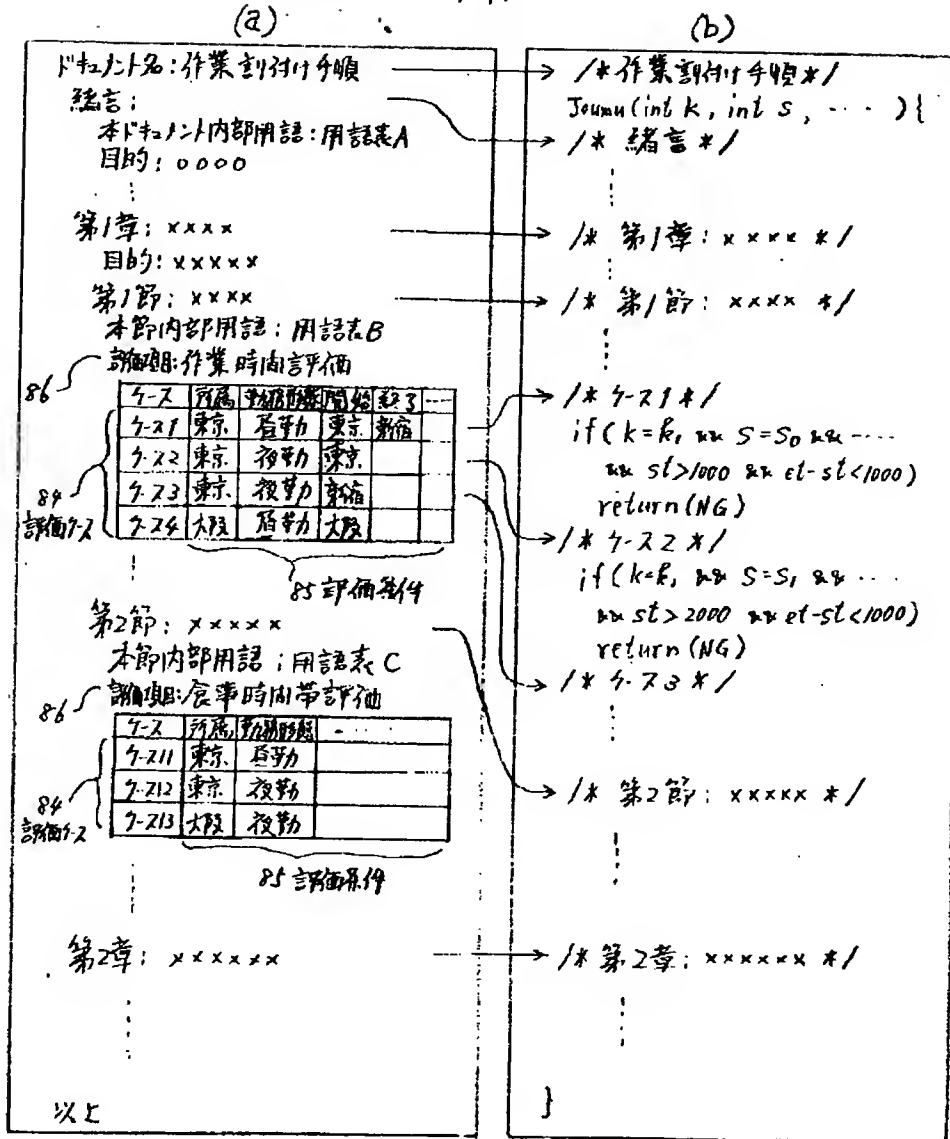 (a)
ドキュメント名:作業割付け手順
緒言:
本ドキュメント内部用語:用語表A
目的:○○○○
第1章:××××
目的:×××××
第1節:××××
本節内部用語:用語表B
86 評価項目:作業時間評価
ケース 所属 勤務形態 開始 終了 ……
ケース1 東京 昼勤 東京 新宿
ケース2 東京 夜勤 東京
ケース3 東京 夜勤 新宿
ケース4 大阪 昼勤 大阪
84
評価ケース
85 評価条件
第2節:×××××
本節内部用語:用語表C
86 評価項目:食事時間帯評価
ケース 所属 勤務形態 ……
ケース11 東京 昼勤
ケース12 東京 夜勤
ケース13 大阪 夜勤
84
評価ケース
85 評価条件
第2章:××××××
以上
(b)
/*作業割付け手順*/
Joumu(int k, int s, ‥‥ ){
/* 緒言 */
/* 第1章:×××× */
/* 第1節:×××× */
/* ケース1 */
if( k=k1 && S=S0 && ‥‥
&& st>1000 && et-st<1000)
return(NG)
/* ケース2 */
if(k=k1 && S=S1 && ‥‥
&& st>2000 && et-st<1000)
return(NG)
/* ケース3 */
/* 第2節:××××× */
/* 第2章:×××××× */
}